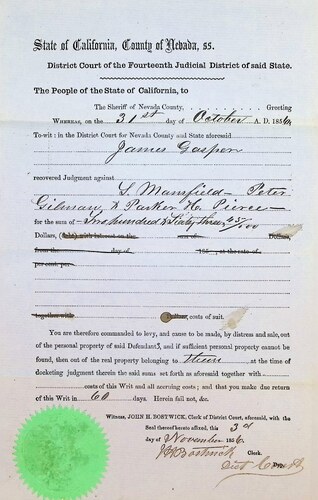 State of California, County of Nevada, ss.
District Court of the Fourteenth Judicial District of said State.
The People of the State of California, to
The Sheriff of Nevada County, . . . . . . . . . . Greeting
WHEREAS, on the 31st day of October A. D. 1856,
To-wit: in the District Court for Nevada County and State aforesaid
James Gasper
recovered Judgment against
S. Mansfield – Peter
Gilman, & Parker H. Pierce –
for the sum of – Two hundred & Sixty three 45/100
Dollars, (debt) with interest on the sum of Dollars,
from the day of 185 , at the rate of
per cent. per
together with Dollars, costs of suit.
You are therefore commanded to levy, and cause to be made, by distress and sale, out
of the personal property of said Defendants, and if sufficient personal property cannot be
found, then out of the real property belonging to them at the time of
docketing judgment therein the said sums set forth as aforesaid together with
costs of this Writ and all accruing costs; and that you make due return
of this Writ in 60 days. Herein fail not, &c.
Witness, JOHN H. BOSTWICK, Clerk of District Court, aforesaid, with the
Seal thereof hereto affixed, this 3rd
day of November 1856.
J H Bostwick Clerk.